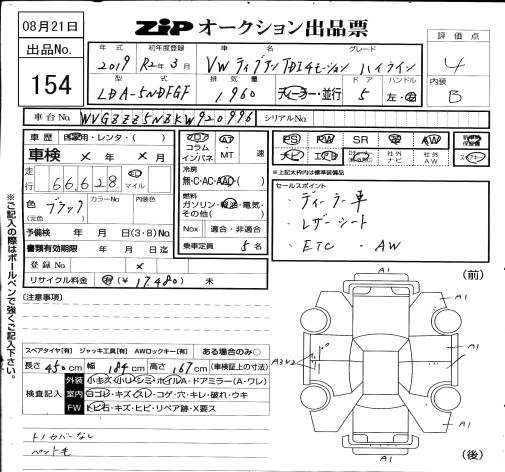 08月21日
ZiP オークション出品票
出品No.
154
年式 初年度登録 車名 グレード
2019 R2年3月 VW ティグアン TDI 4モーション ハイライン
型式 排気量 ドア ハンドル
LDA-5NDFGF 1,960 ディーラー・並行 5 左・右
評価点
4
内装
B
車台No. WVGZZZ5NZKW920996 シリアルNo.
車歴 自家用・レンタ・( )
車検 × 年 × 月
走行 66,628 km マイル
色(元色) ブラック カラーNo. 内装色
予備検 年 月 日(3・8)No.
書類有効期限 年 月 日迄
登録No. ×
リサイクル料金 済(¥ 17,480) 未
フロア コラム インパネ
AT・MT 速
冷房
無・C・AC・AAC・( )
燃料
ガソリン・軽油・電気・その他( )
Nox 適合・非適合
乗車定員 5名
PS PW SR 革 AW
ナビ エアB 社外ナビ 社外AW
スペアキー
※上記太枠内は標準装備品
セールスポイント
・ディーラー車
・レザーシート
・ETC ・AW
※ご記入の際はボールペンで強くご記入下さい。
(注意事項)
スペアタイヤ【有】 ジャッキ工具【有】 AWロックキー【有】 ある場合のみ○
長さ 450cm 幅 184cm 高さ 167cm (車検証上の寸法)
検査記入
外装 小キズ・小リペ・ホイルA・ドアミラー(A・ワレ)
室内 ヨゴレ・キズ・スレ・コゲ・穴・キレ・破れ・ウキ
FW トビ石・キズ・ヒビ・リペア跡・X要ス
トノカバーなし
ペット毛
(前)
A1
A1
A1
A3U2
A1
A1
A1
(後)